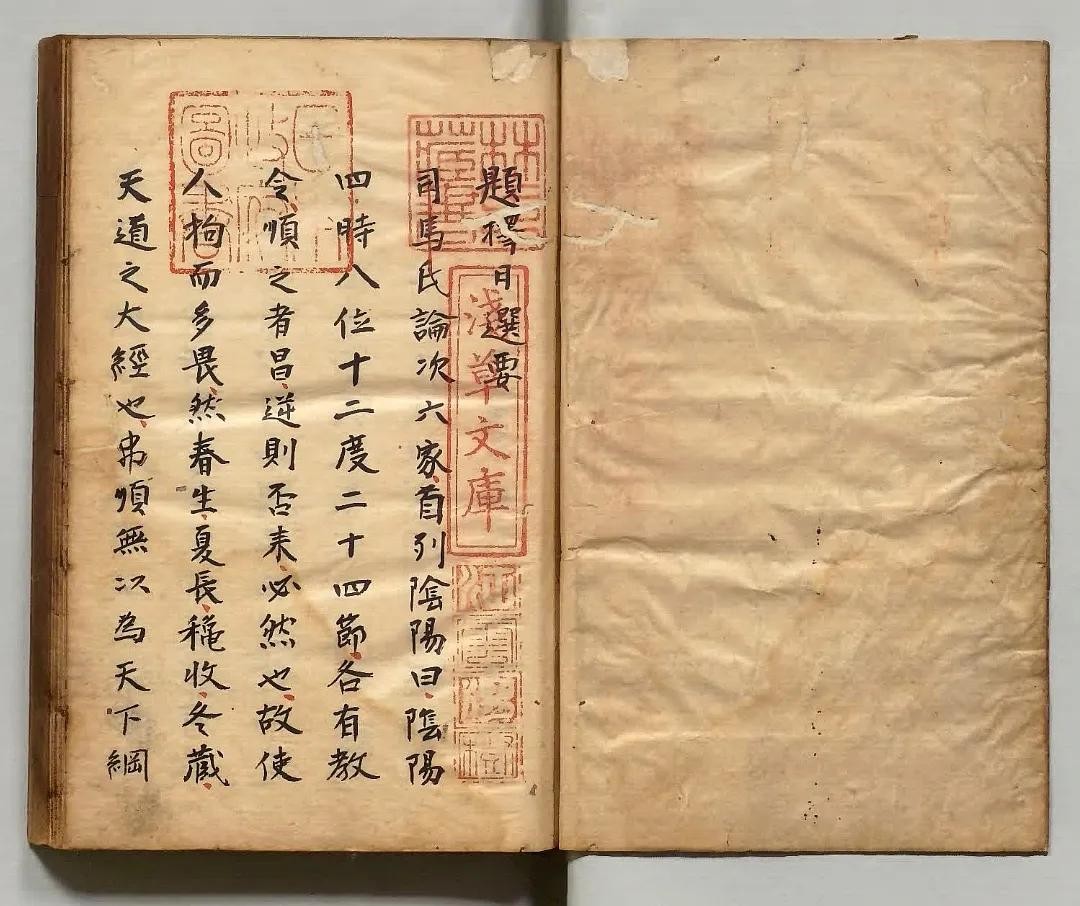 題擇日選要
司馬氏論次六家首列陰陽曰陰陽
四時八位十二度二十四節各有教
令順之者昌逆則否未必然也故使
人拘而多畏然春生夏長穐收冬藏
天道之大經也弗順無以為天下綱
林氏藏書
淺草文庫
江雲渭樹
圖書